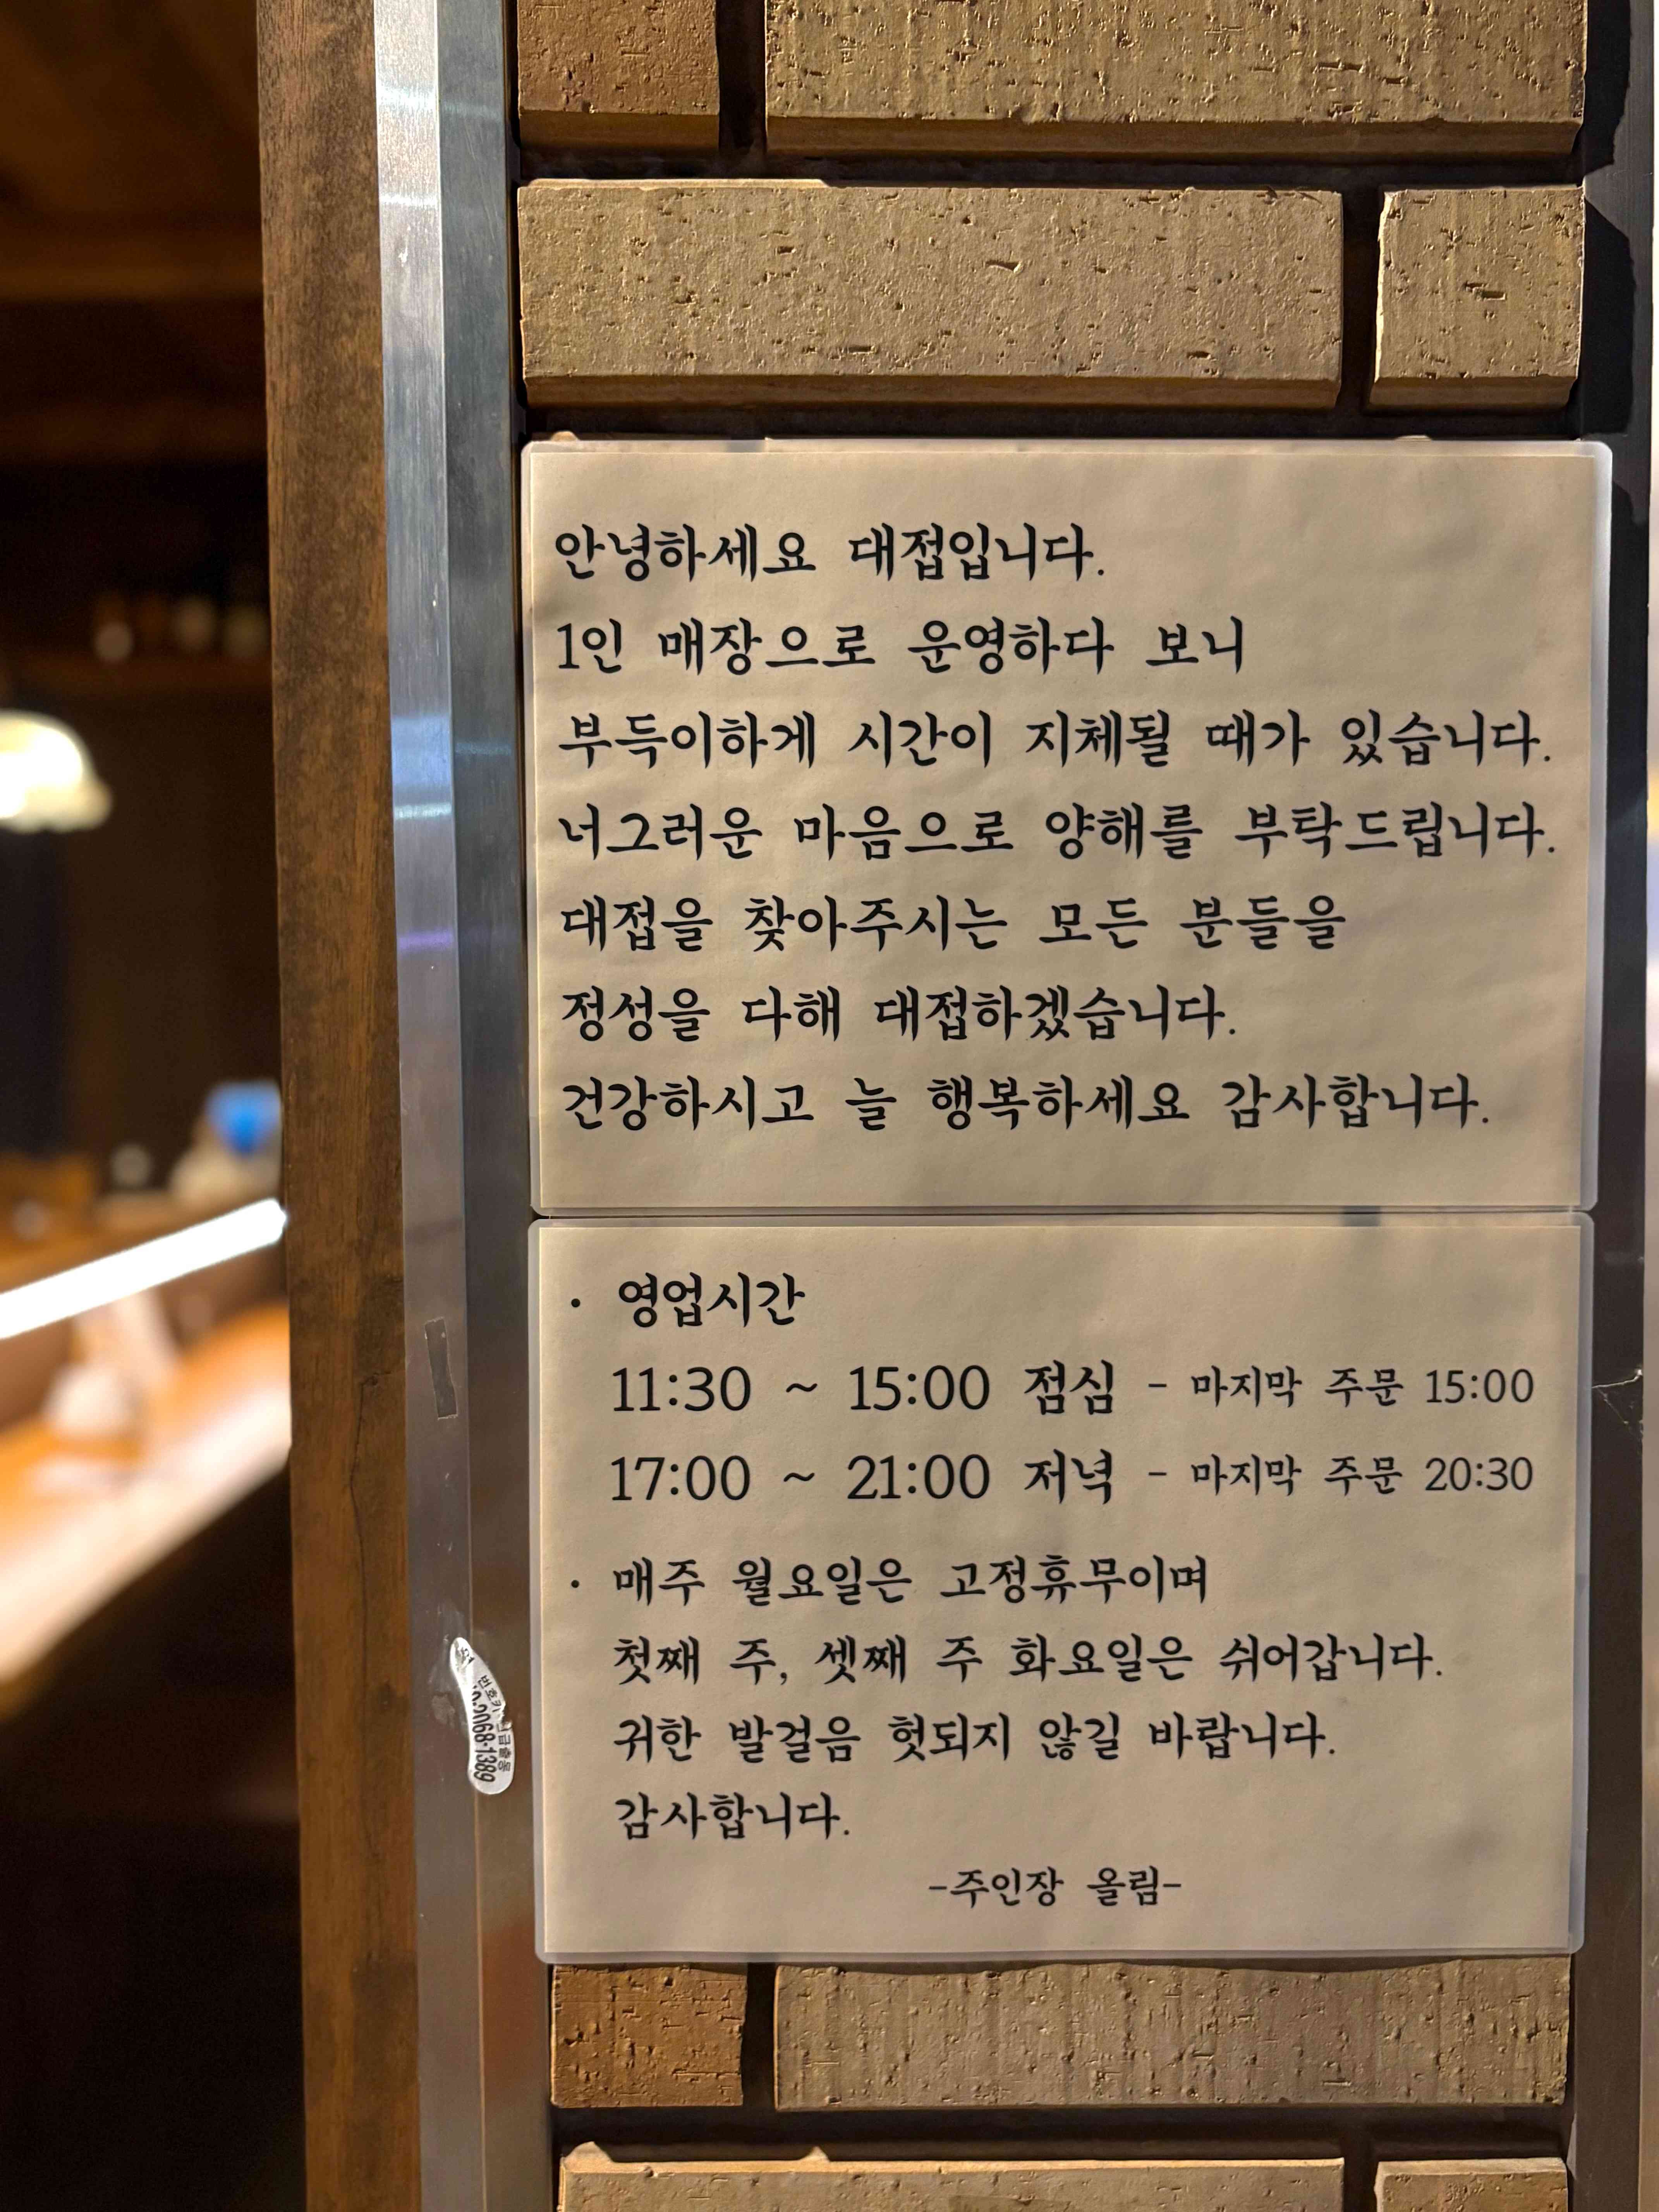 안녕하세요 대접입니다.
1인 매장으로 운영하다 보니
부득이하게 시간이 지체될 때가 있습니다.
너그러운 마음으로 양해를 부탁드립니다.
대접을 찾아주시는 모든 분들을
정성을 다해 대접하겠습니다.
건강하시고 늘 행복하세요 감사합니다.
· 영업시간
11:30 ~ 15:00 점심 - 마지막 주문 15:00
17:00 ~ 21:00 저녁 - 마지막 주문 20:30
· 매주 월요일은 고정휴무이며
첫째 주, 셋째 주 화요일은 쉬어갑니다.
귀한 발걸음 헛되지 않길 바랍니다.
감사합니다.
-주인장 올림-
번호키
2068-1389